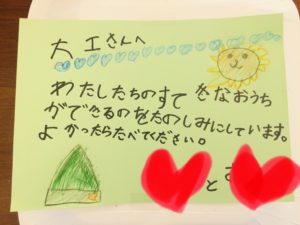 大工さんへ
わたしたちのすてきなおうち
ができるのをたのしみにしています。
よかったらたべてください。
と